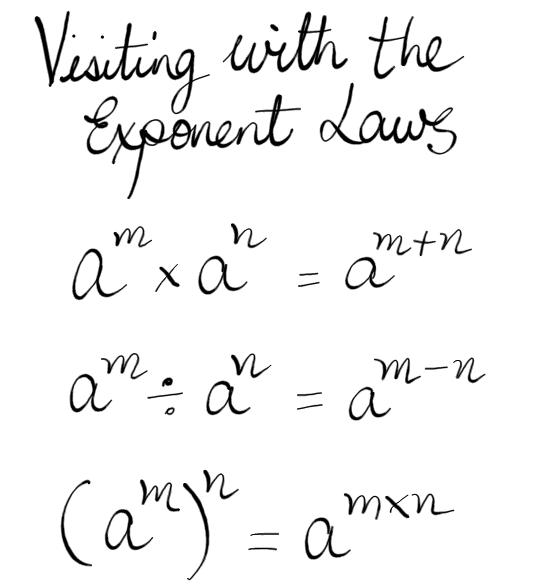 Visiting with the
Exponent Laws
aᵐ × aⁿ = aᵐ⁺ⁿ
aᵐ ÷ aⁿ = aᵐ⁻ⁿ
(aᵐ)ⁿ = aᵐˣⁿ